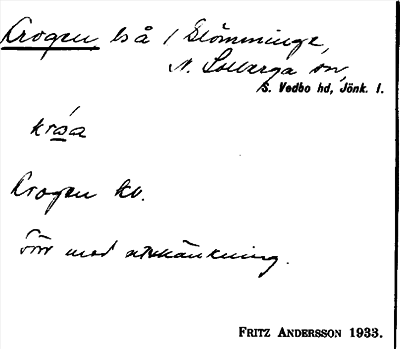 Krogen bs å / Glömminge,
N. Solberga sn,
S. Vedbo hd, Jönk. l.
Krogen kv.
Förr med utskänkning.
FRITZ ANDERSSON 1933.